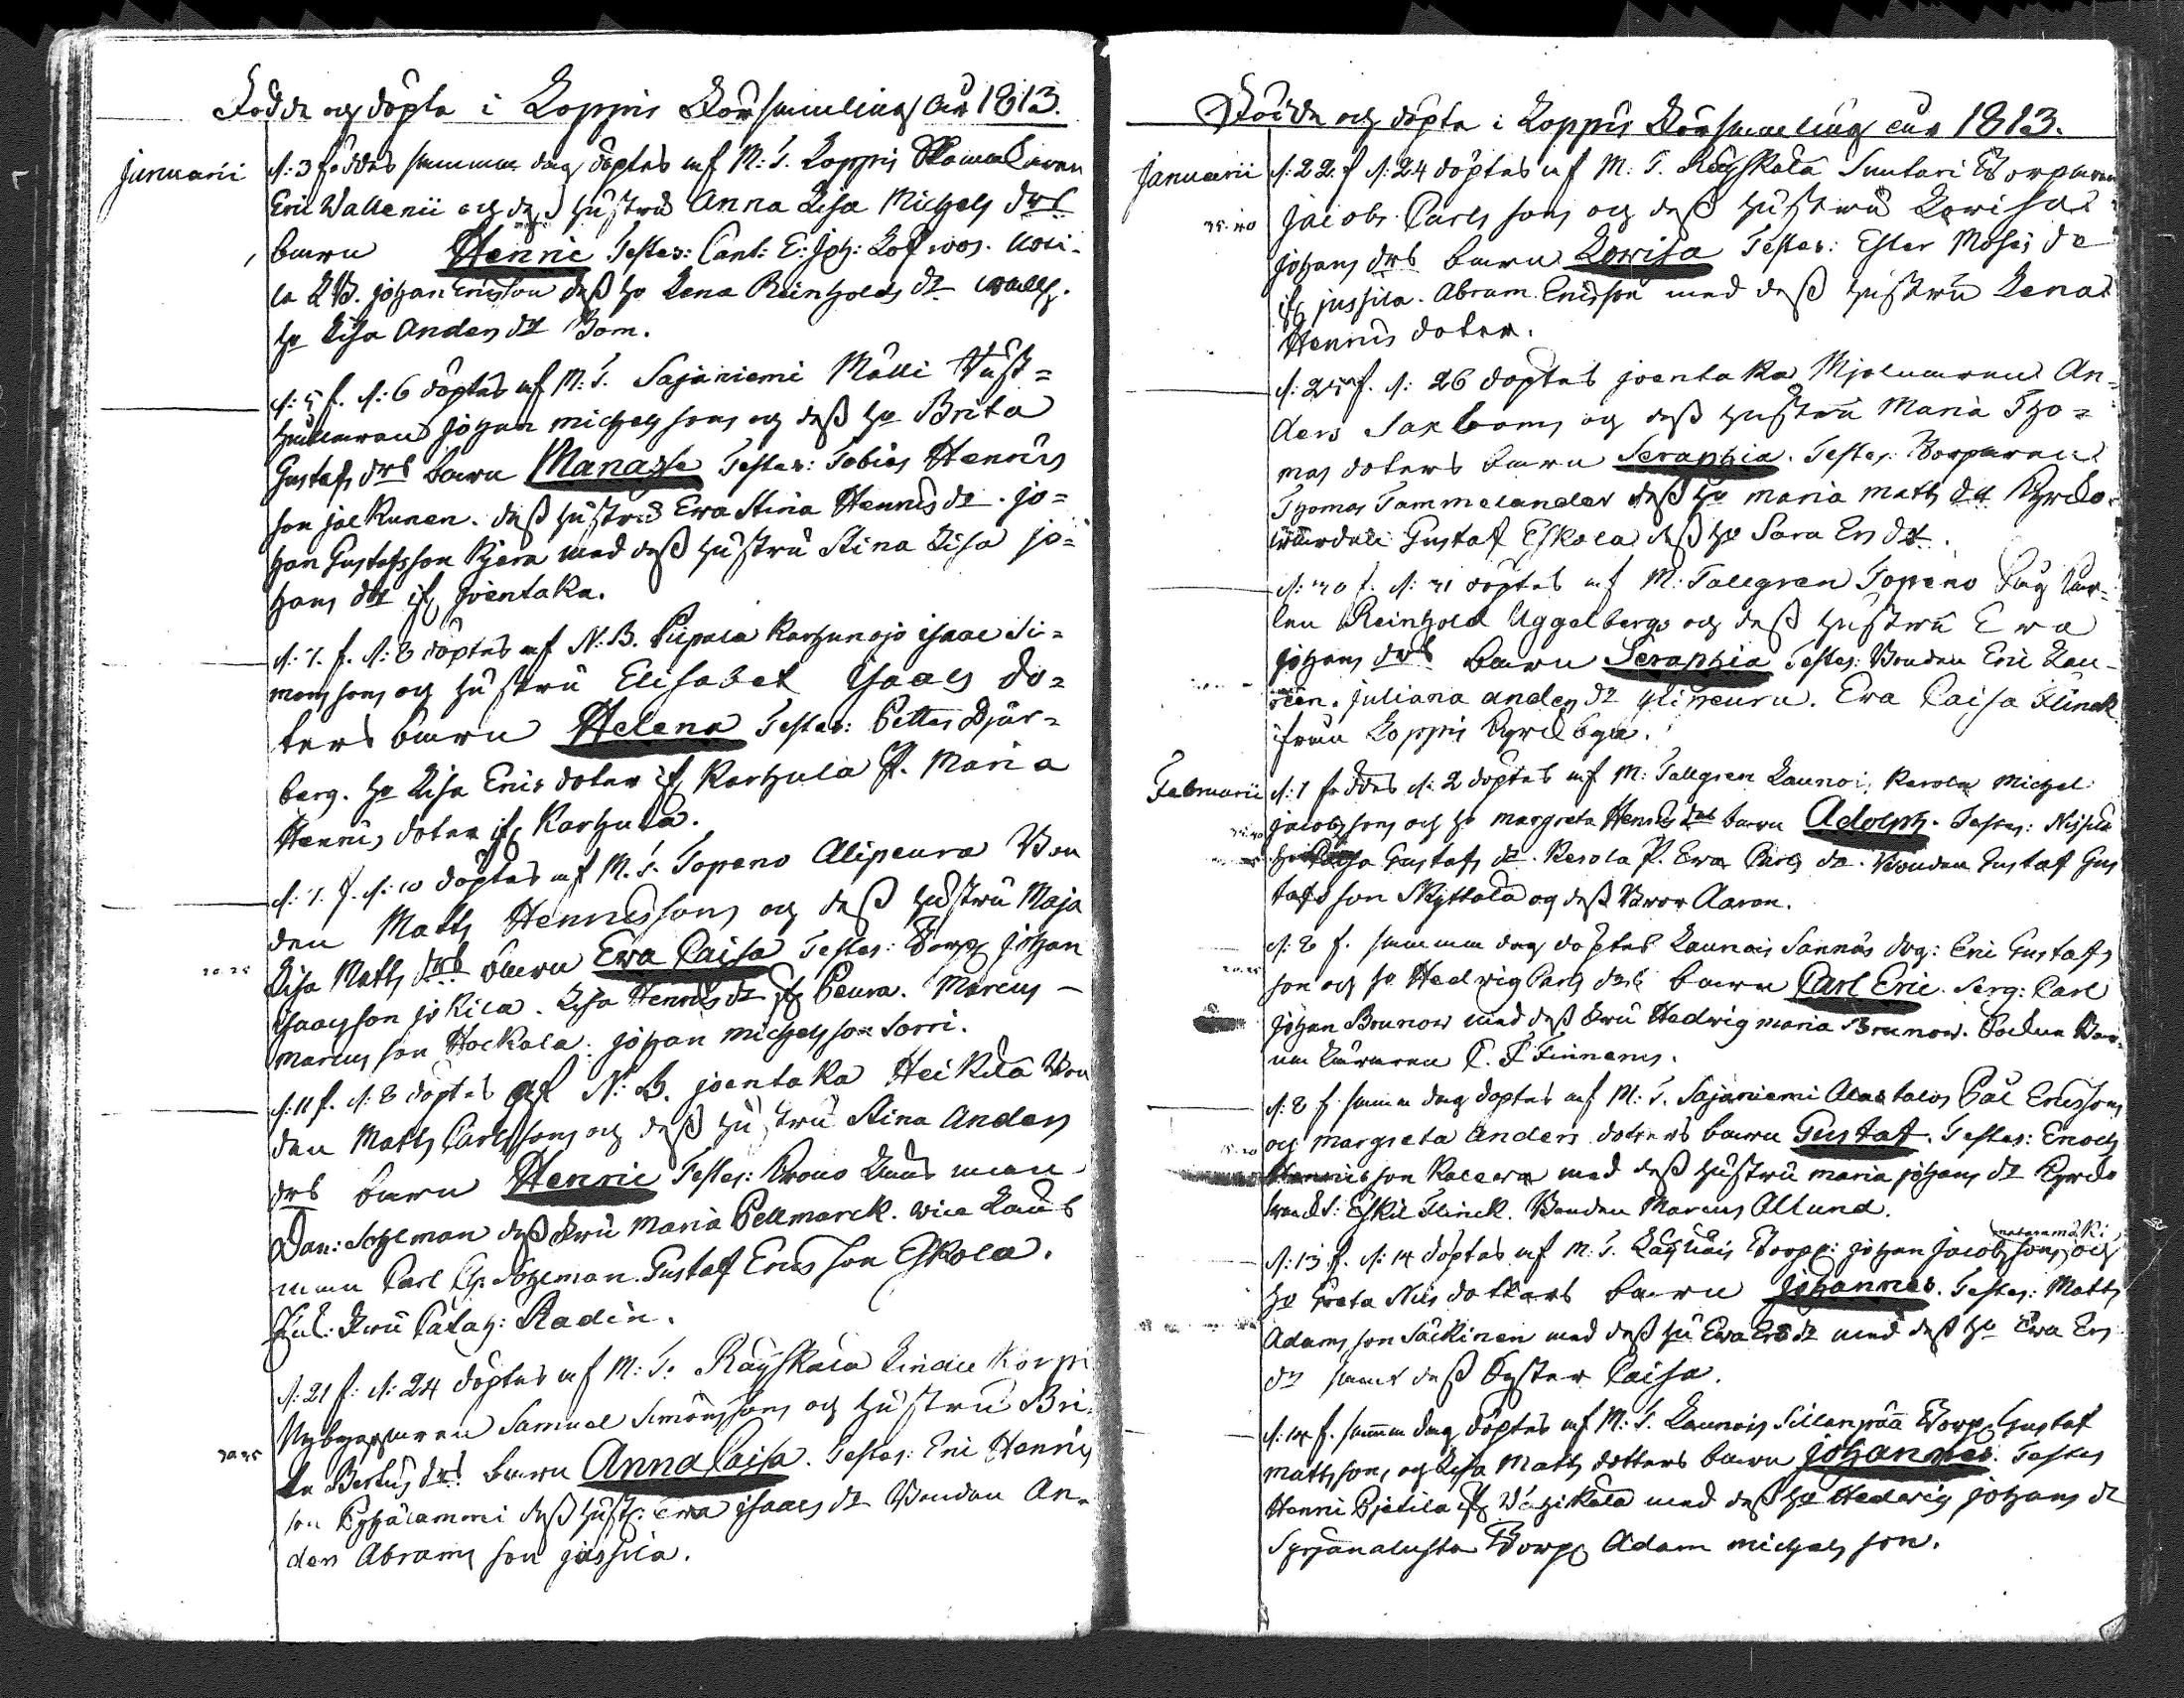 Födde och döpte i Loppis Församling år 1813.
Januarii
d: 3 föddes samma dag döptes af M: T. Loppis Skomakaren
Eric Wallenii och dess hustru Anna Lisa Michels drs
barn Henric Testes: Cant: E: Joh: Löfroos.
la Johan Ericsson dess h. Lena Reinholds dr
h. Lisa Anders dr Bom.
d: 5 f. d: 6 döptes af M: T. Sajaniemi Mälli
Johan Michelssons och dess h. Brita
Gustafs drs barn Manasse Testes: Tobias Henrics
son Jaekunen. dess hustru Ewa Stina Henrics dr. Jo=
han Gustafsson Kjera med dess hustru Stina Lisa Jo=
hans dr ifr. Joentaka.
d: 7. f. d: 8 döptes af N: B. Pilpala Karhunojo Isaac Si=
monssons och hustru Elisabet Isaacs do=
ters barn Helena Testes: Petter Björ=
berg. h. Lisa Erics doter ifr. Karhula P. Maria
Henrics doter ifr. Karhula.
d: 7. f. d: 10 döptes af M: T. Topeno Alipeura Bon
den Matts Henricssons och dess hustru Maja
Lisa Matts drs barn Ewa Caisa Testes: Torp. Johan
Isaacsson Jokila. Lisa Henrics dr ifr. Peura. Marcus
Marcusson Hockala. Johan Michelsson Sorri.
d: 11 f. d: 8 döptes af N: B. Joentaka Heikilä Bon
den Matts Carlssons och dess hustru Stina Anders
drs barn Henric Testes: Crono Länsman
Dan: Sohlman dess Fru Maria Pellmarck. Vice Läns
man Carl Sohlman. Gustaf Ericsson Eskola.
Enk: Fru Catah: Radin.
d: 21 f: d: 24 döptes af M: T. Räyskälä Korpi
Nybyggaren Samuel Simonssons och hustru Bri
ta Bertils drs barn Anna Caisa. Testes: Eric Henrics
son Pyhälammi dess hustr: Ewa Isaacs dr Bonden An=
ders Abramsson Jussila.
Födde och döpte i Loppis Församling år 1813.
Januarii
d: 22. f d: 24 döptes af M: T. Räyskälä Suutari Torparen
Jacobs Carlssons och dess hustru Lovisa
Johans drs barn Lovisa Testes: Ester Moses dr
ifr Jussila. Abram Ericsson med dess hustru Lena
Henrics doter.
d: 25 f. d: 26 döptes Joentaka Mjölnaren An=
ders Saxboms och dess hustru Maria Tho=
mas doters barn Seraphia. Testes: Torparen
Thomas Tammelander dess h. Maria Matts dr Kyrko=
wärden Gustaf Eskola dess h. Sara Ers dr.
d: 30 f. d: 31 döptes af M: Tallgren Topeno
Reinhold Uggelbergs och dess hustru Ewa
Johans drs barn Seraphia Testes: Bonden Eric Lau-
reen. Juliana Anders dr Ylipeura. Ewa Caisa Flinck
ifrån Loppis Kyrckbya.
Februarii
d: 1 föddes d: 2 döptes af M: Tallgren Launois Kerola Michel
Jacobssons och h. Margreta Henrics drs barn Adolph. Testes: Nissilä
Caisa Gustafs dr. Kerola P. Ewa Carls dr. Bonden Gustaf Gus
tafsson Skyttälä och dess Bror Aaron.
d: 8 f. samma dag döptes Launois Sannäs drg: Eric Gustafs
son och h. Hedvig Carls drs barn Carl Eric. Serg: Carl
Johan Brunow med dess Fru Hedvig Maria Brunow.
Finnenus.
d: 8 f. samma dag döptes af M: T. Sajaniemi Alastalos Pål Ericssons
och Margreta Anders dotters barn Gustaf. Testes: Enoch
Henricsson Kaleva med dess hustru Maria Johans dr Kyrko
Eskil Flinck. Bonden Marcus Allund.
d: 13 f. d: 14 döptes af M: T. Läyliäis Torpp: Johan Jacobssons och
matanmäki
h. Greta Nils dotters barn Johannes. Testes: Matts
Adamsson Säckinen med dess hu Ewa Ers dr med dess h. Ewa Ers
dr samt dess syster Caisa.
d: 14 f. samma dag döptes af M: T. Launois Sillanpää Torp. Gustaf
Mattssons och Lisa Matts dotters barn Johannes. Testes
Henric Pjetilä ifr Vähikälä med dess h. Hedvig Johans dr
Syrjänalusta Torp. Adam Michelsson.